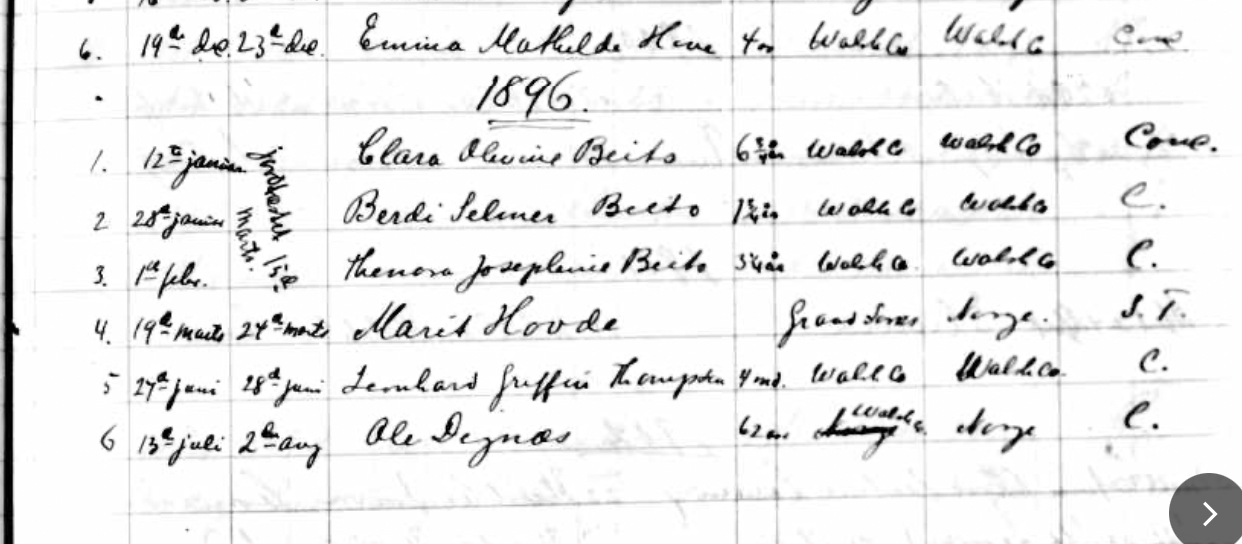 6. 19de dec. 23de dec. Emma Mathilde Hove 4 Walsh Co Walsh Co Conc
1896.
1. 12te januar Clara Olevine Beito 6 3/4 år Walsh Co Walsh Co Conc.
jordfæstet 15de marts.
2 28de januar Berdi Selmer Beito 1 3/4 år Walsh Co Walsh Co C.
3. 1ste febr. Thenora Josephine Beito år Walsh Co Walsh Co C.
4. 19de marts 24de marts Marit Hovde Grand Forks Norge. S. T.
5 27de juni 28de juni Leonhard Griffin Thompson 4 md. Walsh Co Walsh Co. C.
6 13de juli 2den aug Ole Degnæs 62 Walsh Co. Norge C.